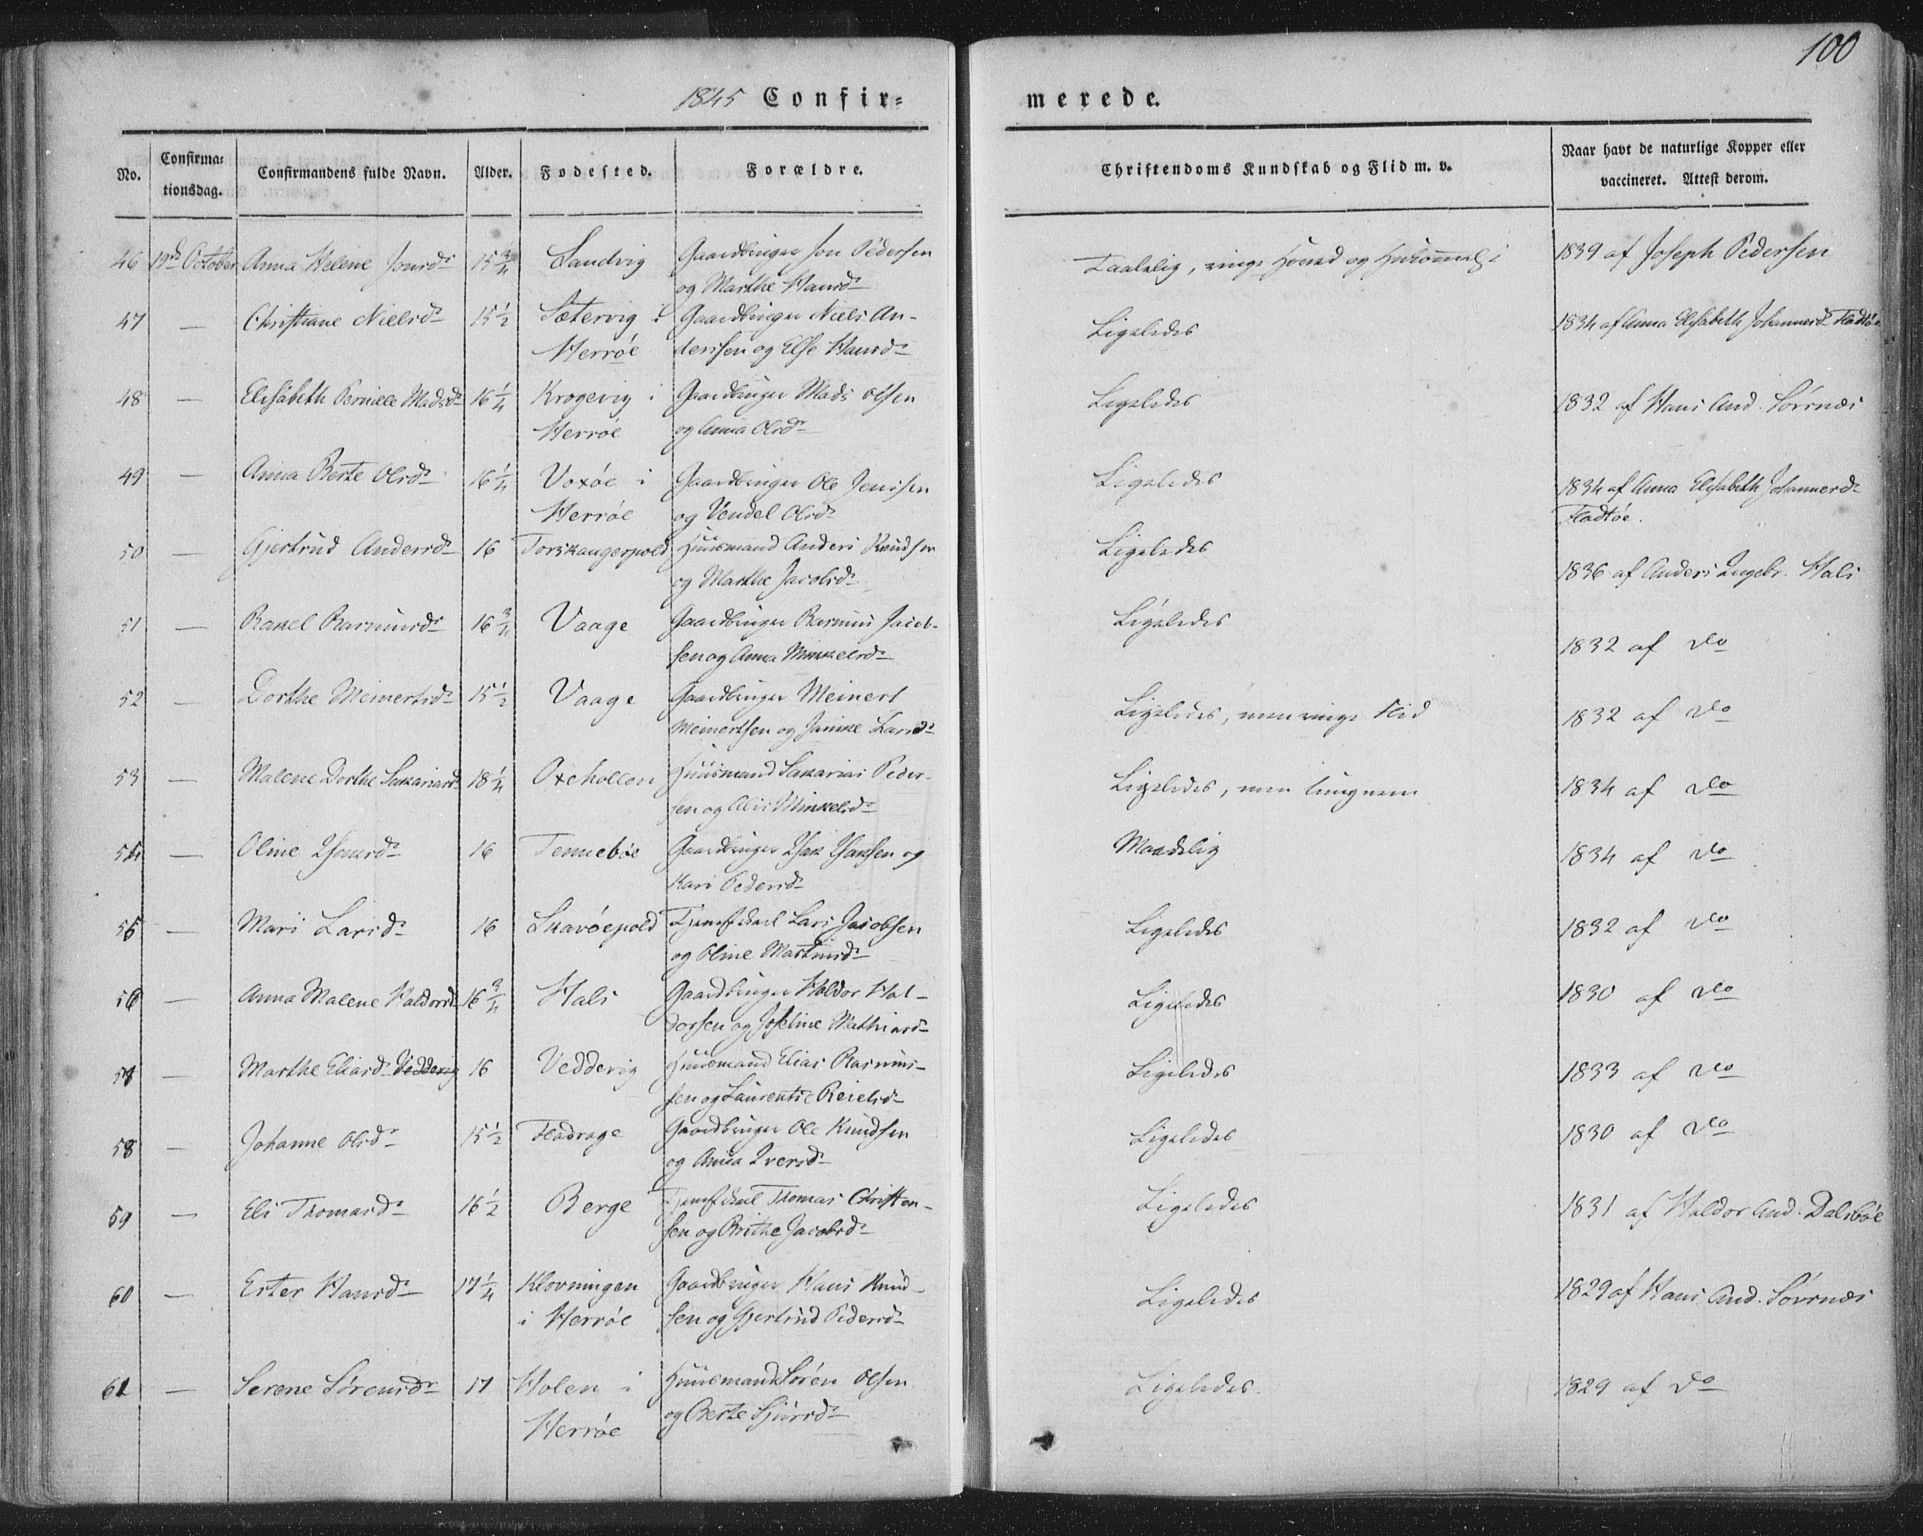 100
1845 Confir=
merede.
No. Confirma=tionsdag. Confirmandens fulde Navn. Alder. Fødested. Forældre. Christendoms Kundskab og Flid m. v. Naar havt de naturlige Kopper eller vaccineret. Attest derom.
46 19de October Anna Helene Jonsdr 15 3/4 Sandvig Gaardbruger Jon Pedersen
og Marthe Hansdr
Taalelig, ringe 1839 af Joseph Pedersen
47 — Christiane Nielsdr 15 1/2 Sætervig i Gaardbruger Niels An-
Herröe dersen og Else Hansdr
Ligeledes 1834 af Anna Elisabeth Johannesdr Fladtöe
48 — Elisabeth Pernille Madsdr 16 1/4 Krogevig i Gaardbruger Mads Olsen
Herröe og Anna Olsdr
Ligeledes 1832 af Hans And. Sörnæs
49 — Anna Berte Olsdr 16 1/4 Voxöe i Gaardbruger Ole Jensen
Herröe og Vendel Olsdr
Ligeledes 1834 af Anna Elisabeth Johannesdr
Fladtöe.
50 — Gjertrud Andersdr 16 Torskangerpold Huusmand Anders Knudsen
og Marthe Jacobsdr
Ligeledes 1836 af Anders Ingebr. Hals
51 — Rakel Rasmusdr 16 3/4 Vaage Gaardbruger Rasmus Jacob-
sen og Anna Mikkelsdr
Ligeledes 1832 af Do
52 — Dorthe Meinertsdr 15 1/2 Vaage Gaardbruger Meinert
Meinertsen og Larsdr
Ligeledes, men ringe Flid 1832 af Do
53 — Malene Dorthe Sakariasdr 18 1/4 Oxehollen Huusmand Sakarias Peder-
sen og Alis Mikkelsdr
Ligeledes, men tungnem 1834 af Do
54 — Oline Isaksdr 16 Tennebøe Gaardbruger Isak Isaksen og
Kari Pedersdr
Maadelig 1834 af Do
55 — Mari Larsdr 16 Skavöepold Tjenestkarl Lars Jacobsen
og Oline Martinsdr
Ligeledes 1832 af Do
56 — Anna Malene Haldorsdr 16 3/4 Hals Gaardbruger Haldor Hal-
dorsen og Joseline Mathiasdr
Ligeledes 1830 af Do
57 — Marthe Eliasdr Veddevig 16 Veddevig Huusmand Elias Rasmus-
sen og Laurentse
Ligeledes 1833 af Do
58 — Johanne Olsdr 15 1/2 Fladvage Gaardbruger Ole Knudsen
og Anna Iversdr
Ligeledes 1830 af Do
59 — Eli Thomasdr 16 1/2 Berge Tjenestkarl Thomas Christen-
sen og Brithe Jacobsdr
Ligeledes 1831 af Haldor And. Dalsböe
60 — Ester Hansdr 17 1/4 Klovningen Gaardbruger Hans Knud-
i Herröe sen og Gjertrud Pedersdr
Ligeledes 1829 af Hans And. Sörnæs
61 — Serene Sörensdr 17 Holen i Huusmand Sören Olsen
Herröe og Berte Sjursdr
Ligeledes. 1829 af Do